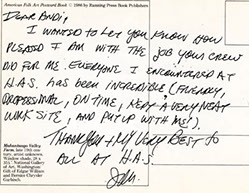 American Folk Art Postcard Book © 1986 by Running Press Book Publishers
Dear Andi,
I wanted to let you know how
pleased I am with the job your crew
did for me. Everyone I encountered at
H.A.S. has been incredible (friendly,
professional, on time, kept a very neat
work site, and put up with me!).
Thank you + my very best to
all at H.A.S.
Mahantango Valley
Farm, late 19th cen-
tury, artist unknown.
Window shade, 28 x
National Gallery
of Art, Washington;
Gift of Edgar William
and Bernice Chrysler
Garbisch.